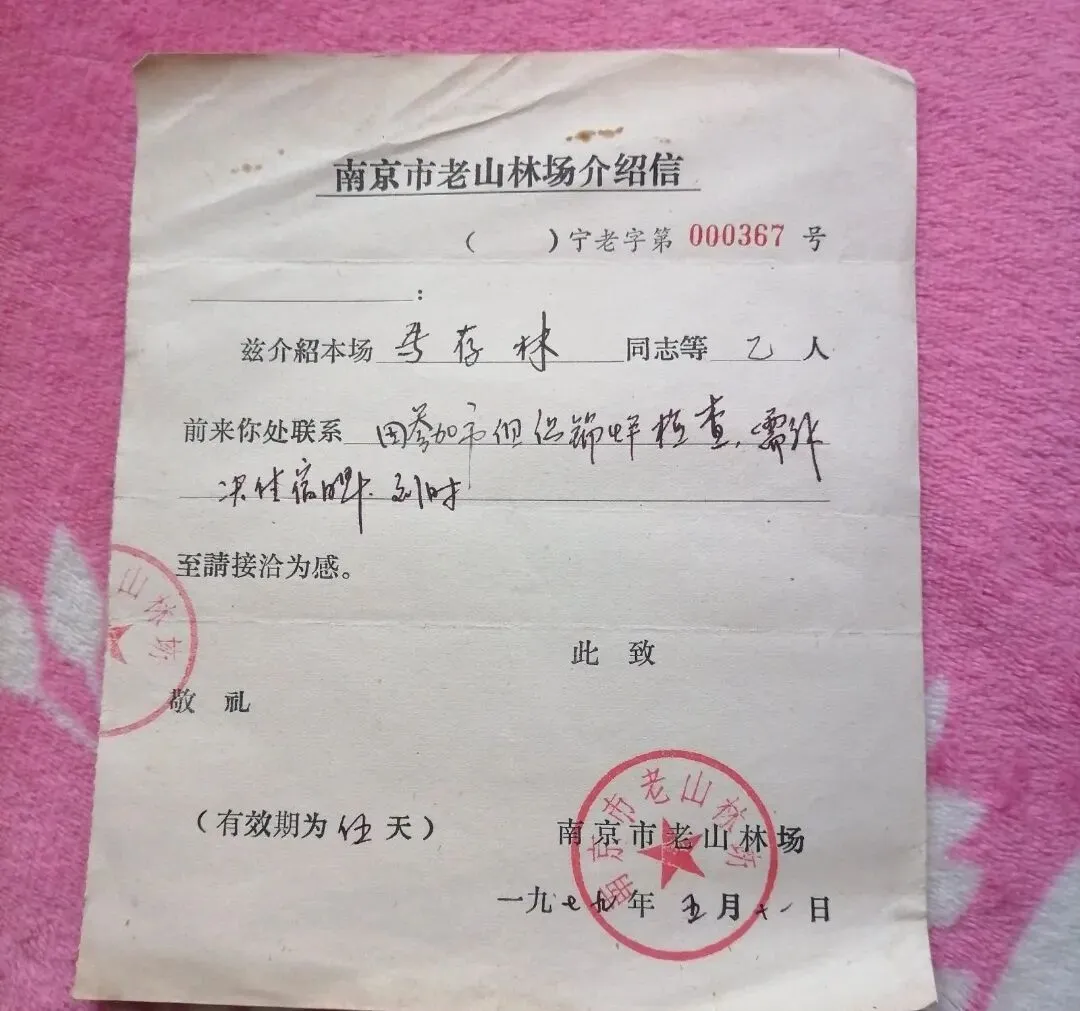 南京市老山林场介绍信
(　　)宁老字第 000367 号
:
兹介紹本场 存林 同志等 乙 人
前来你处联系 因参加市 检查，需作
决住宿 到时
至請接洽为感。
山林场
此 致
敬 礼
(有效期为 伍 天)
南京市老山林场
南京市老山林场
一九七九年 五月十一日